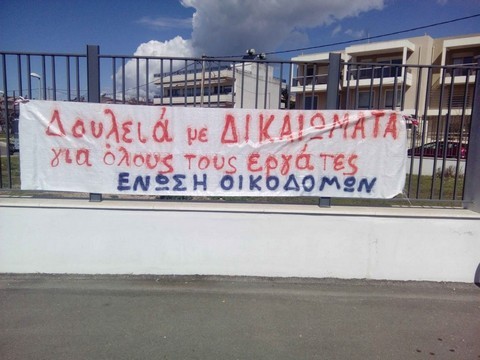 Δουλειά με ΔΙΚΑΙΩΜΑΤΑ
για όλους τους εργάτες
ΕΝΩΣΗ ΟΙΚΟΔΟΜΩΝ